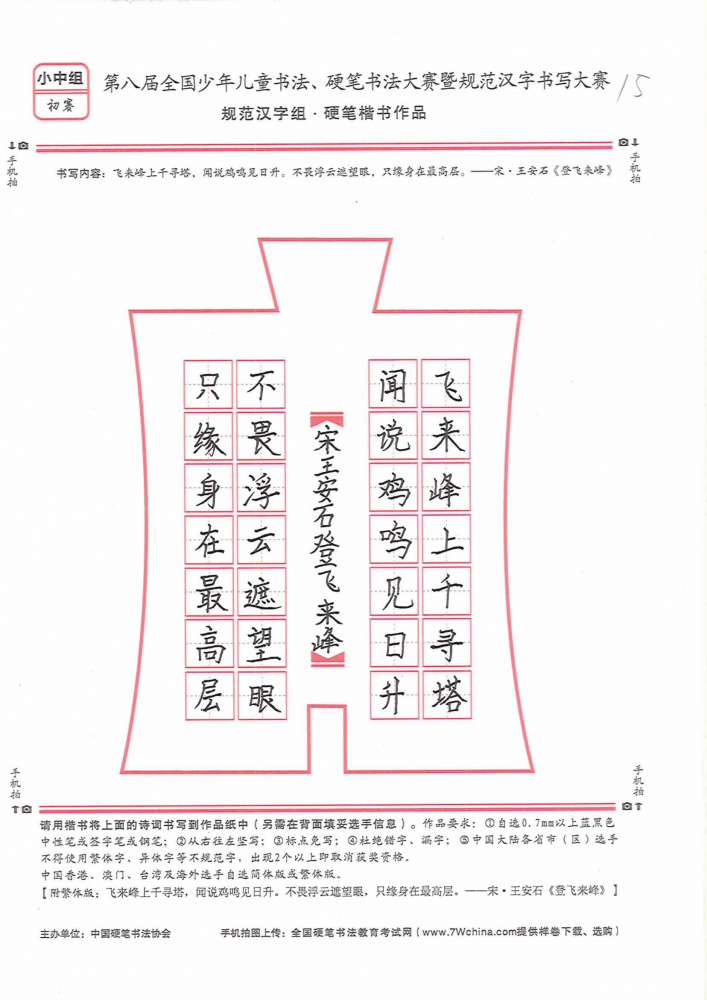 小中组
初赛
第八届全国少年儿童书法、硬笔书法大赛暨规范汉字书写大赛
15
规范汉字组·硬笔楷书作品
手机拍
手机拍
书写内容：飞来峰上千寻塔，闻说鸡鸣见日升。不畏浮云遮望眼，只缘身在最高层。——宋·王安石《登飞来峰》
飞来峰上千寻塔
闻说鸡鸣见日升
宋王安石登飞来峰
不畏浮云遮望眼
只缘身在最高层
手机拍
手机拍
请用楷书将上面的诗词书写到作品纸中（另需在背面填妥选手信息）。作品要求：①自选0.7mm以上蓝黑色
中性笔或签字笔或钢笔；②从右往左竖写；③标点免写；④杜绝错字、漏字；⑤中国大陆各省市（区）选手
不得使用繁体字、异体字等不规范字，出现2个以上即取消获奖资格。
中国香港、澳门、台湾及海外选手自选简体版或繁体版。
【附繁体版：飞来峰上千寻塔，闻说鸡鸣见日升。不畏浮云遮望眼，只缘身在最高层。——宋·王安石《登飞来峰》】
主办单位：中国硬笔书法协会
手机拍图上传：全国硬笔书法教育考试网（www.7Wchina.com提供样卷下载、选购）